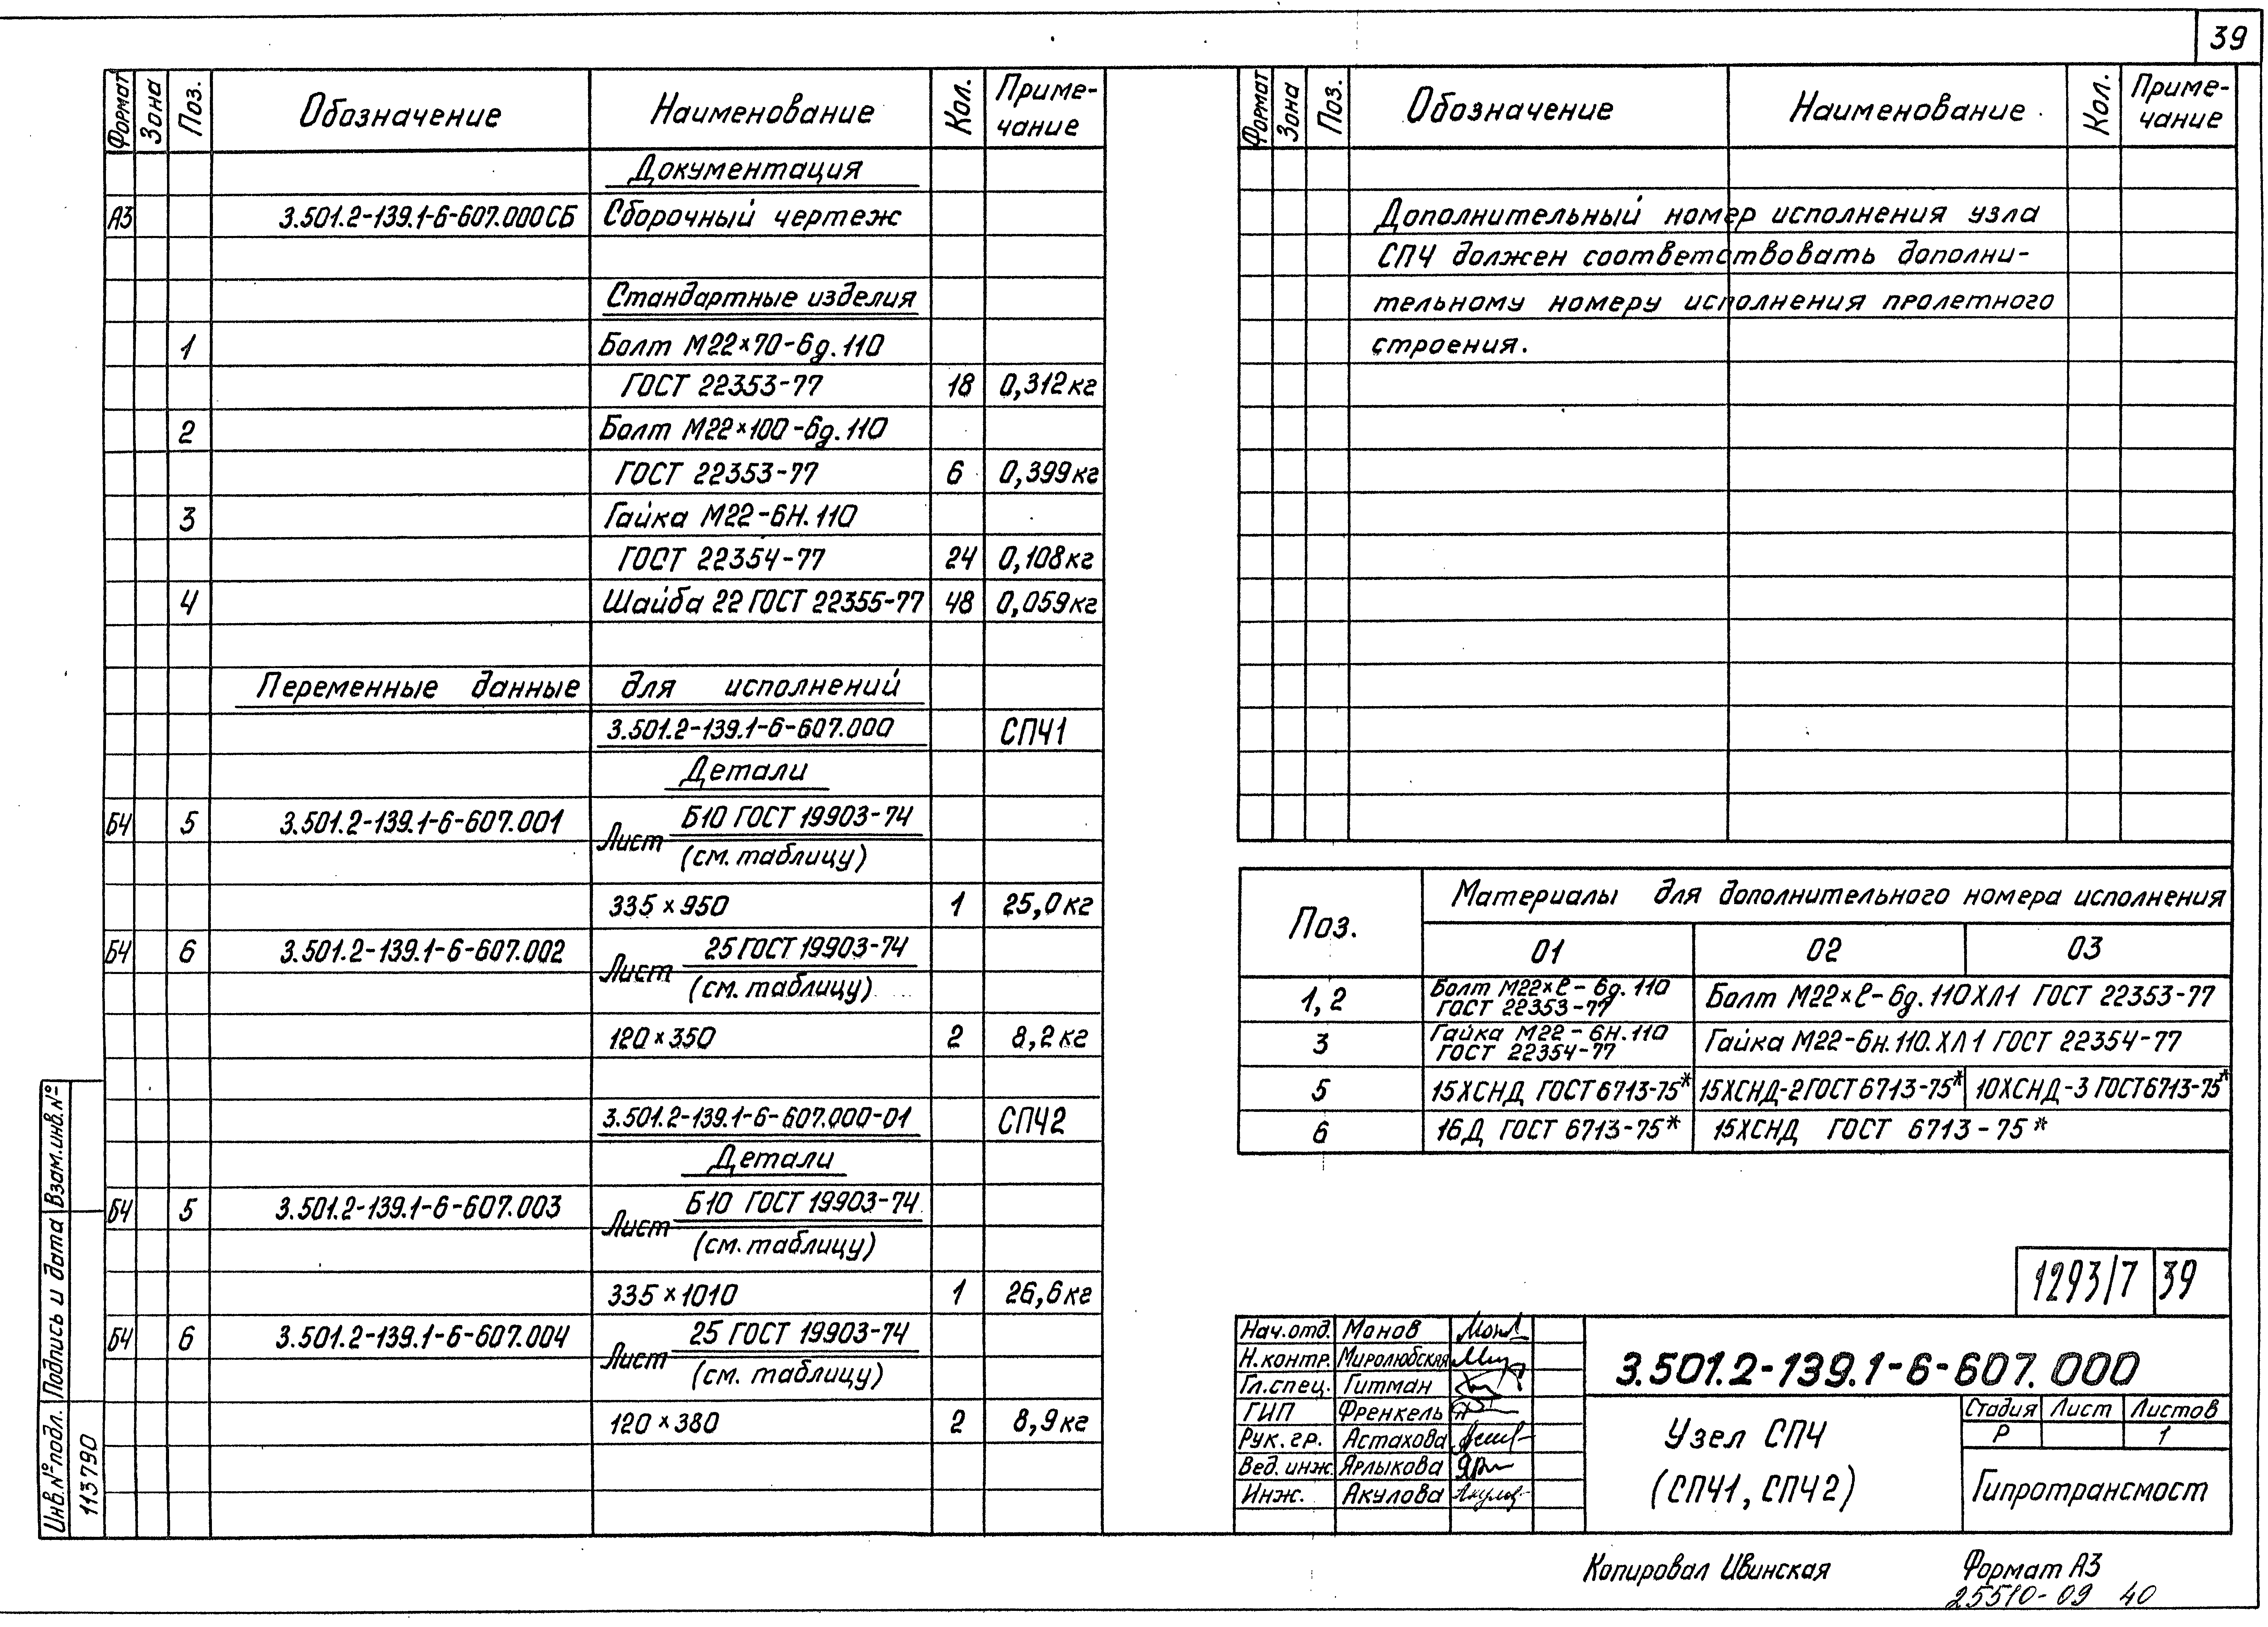 39
Формат Зона Поз. Обозначение Наименование Кол. Приме-чание
Документация
А3 3.501.2-139.1-6-607.000СБ Сборочный чертеж
Стандартные изделия
1 Болт М22×70-6g.110
ГОСТ 22353-77 18 0,312кг
2 Болт М22×100-6g.110
ГОСТ 22353-77 6 0,399кг
3 Гайка М22-6Н.110
ГОСТ 22354-77 24 0,108кг
4 Шайба 22 ГОСТ 22355-77 48 0,059кг
Переменные данные для исполнений
3.501.2-139.1-6-607.000 СПЧ1
Детали
БЧ 5 3.501.2-139.1-6-607.001 Лист Б10 ГОСТ 19903-74
(см. таблицу)
335×950 1 25,0кг
БЧ 6 3.501.2-139.1-6-607.002 Лист 25 ГОСТ 19903-74
(см. таблицу)
120×350 2 8,2кг
3.501.2-139.1-6-607.000-01 СПЧ2
Детали
БЧ 5 3.501.2-139.1-6-607.003 Лист Б10 ГОСТ 19903-74
(см. таблицу)
335×1010 1 26,6кг
БЧ 6 3.501.2-139.1-6-607.004 Лист 25 ГОСТ 19903-74
(см. таблицу)
120×380 2 8,9кг
Инв.№подл. Подпись и дата Взам.инв.№
113790
Формат Зона Поз. Обозначение Наименование Кол. Приме-чание
Дополнительный номер исполнения узла
СПЧ должен соответствовать дополни-
тельному номеру исполнения пролетного
строения.
Поз. Материалы для дополнительного номера исполнения
01 02 03
1, 2 Болт М22×ℓ-6g.110 ГОСТ 22353-77 Болт М22×ℓ-6g.110ХЛ1 ГОСТ 22353-77
3 Гайка М22-6Н.110 ГОСТ 22354-77 Гайка М22-6н.110.ХЛ1 ГОСТ 22354-77
5 15ХСНД ГОСТ 6713-75* 15ХСНД-2 ГОСТ 6713-75* 10ХСНД-3 ГОСТ 6713-75*
6 16Д ГОСТ 6713-75* 15ХСНД ГОСТ 6713-75*
1293/7 39
Нач.отд. Монов
Н.контр. Миролюбская
Гл.спец. Гитман
ГИП Френкель
Рук.гр. Астахова
Вед.инж. Ярлыкова
Инж. Акулова
3.501.2-139.1-6-607.000
Узел СПЧ
(СПЧ1, СПЧ2)
Стадия Лист Листов
Р 1
Гипротрансмост
Копировал Ивинская Формат А3
25510-09 40